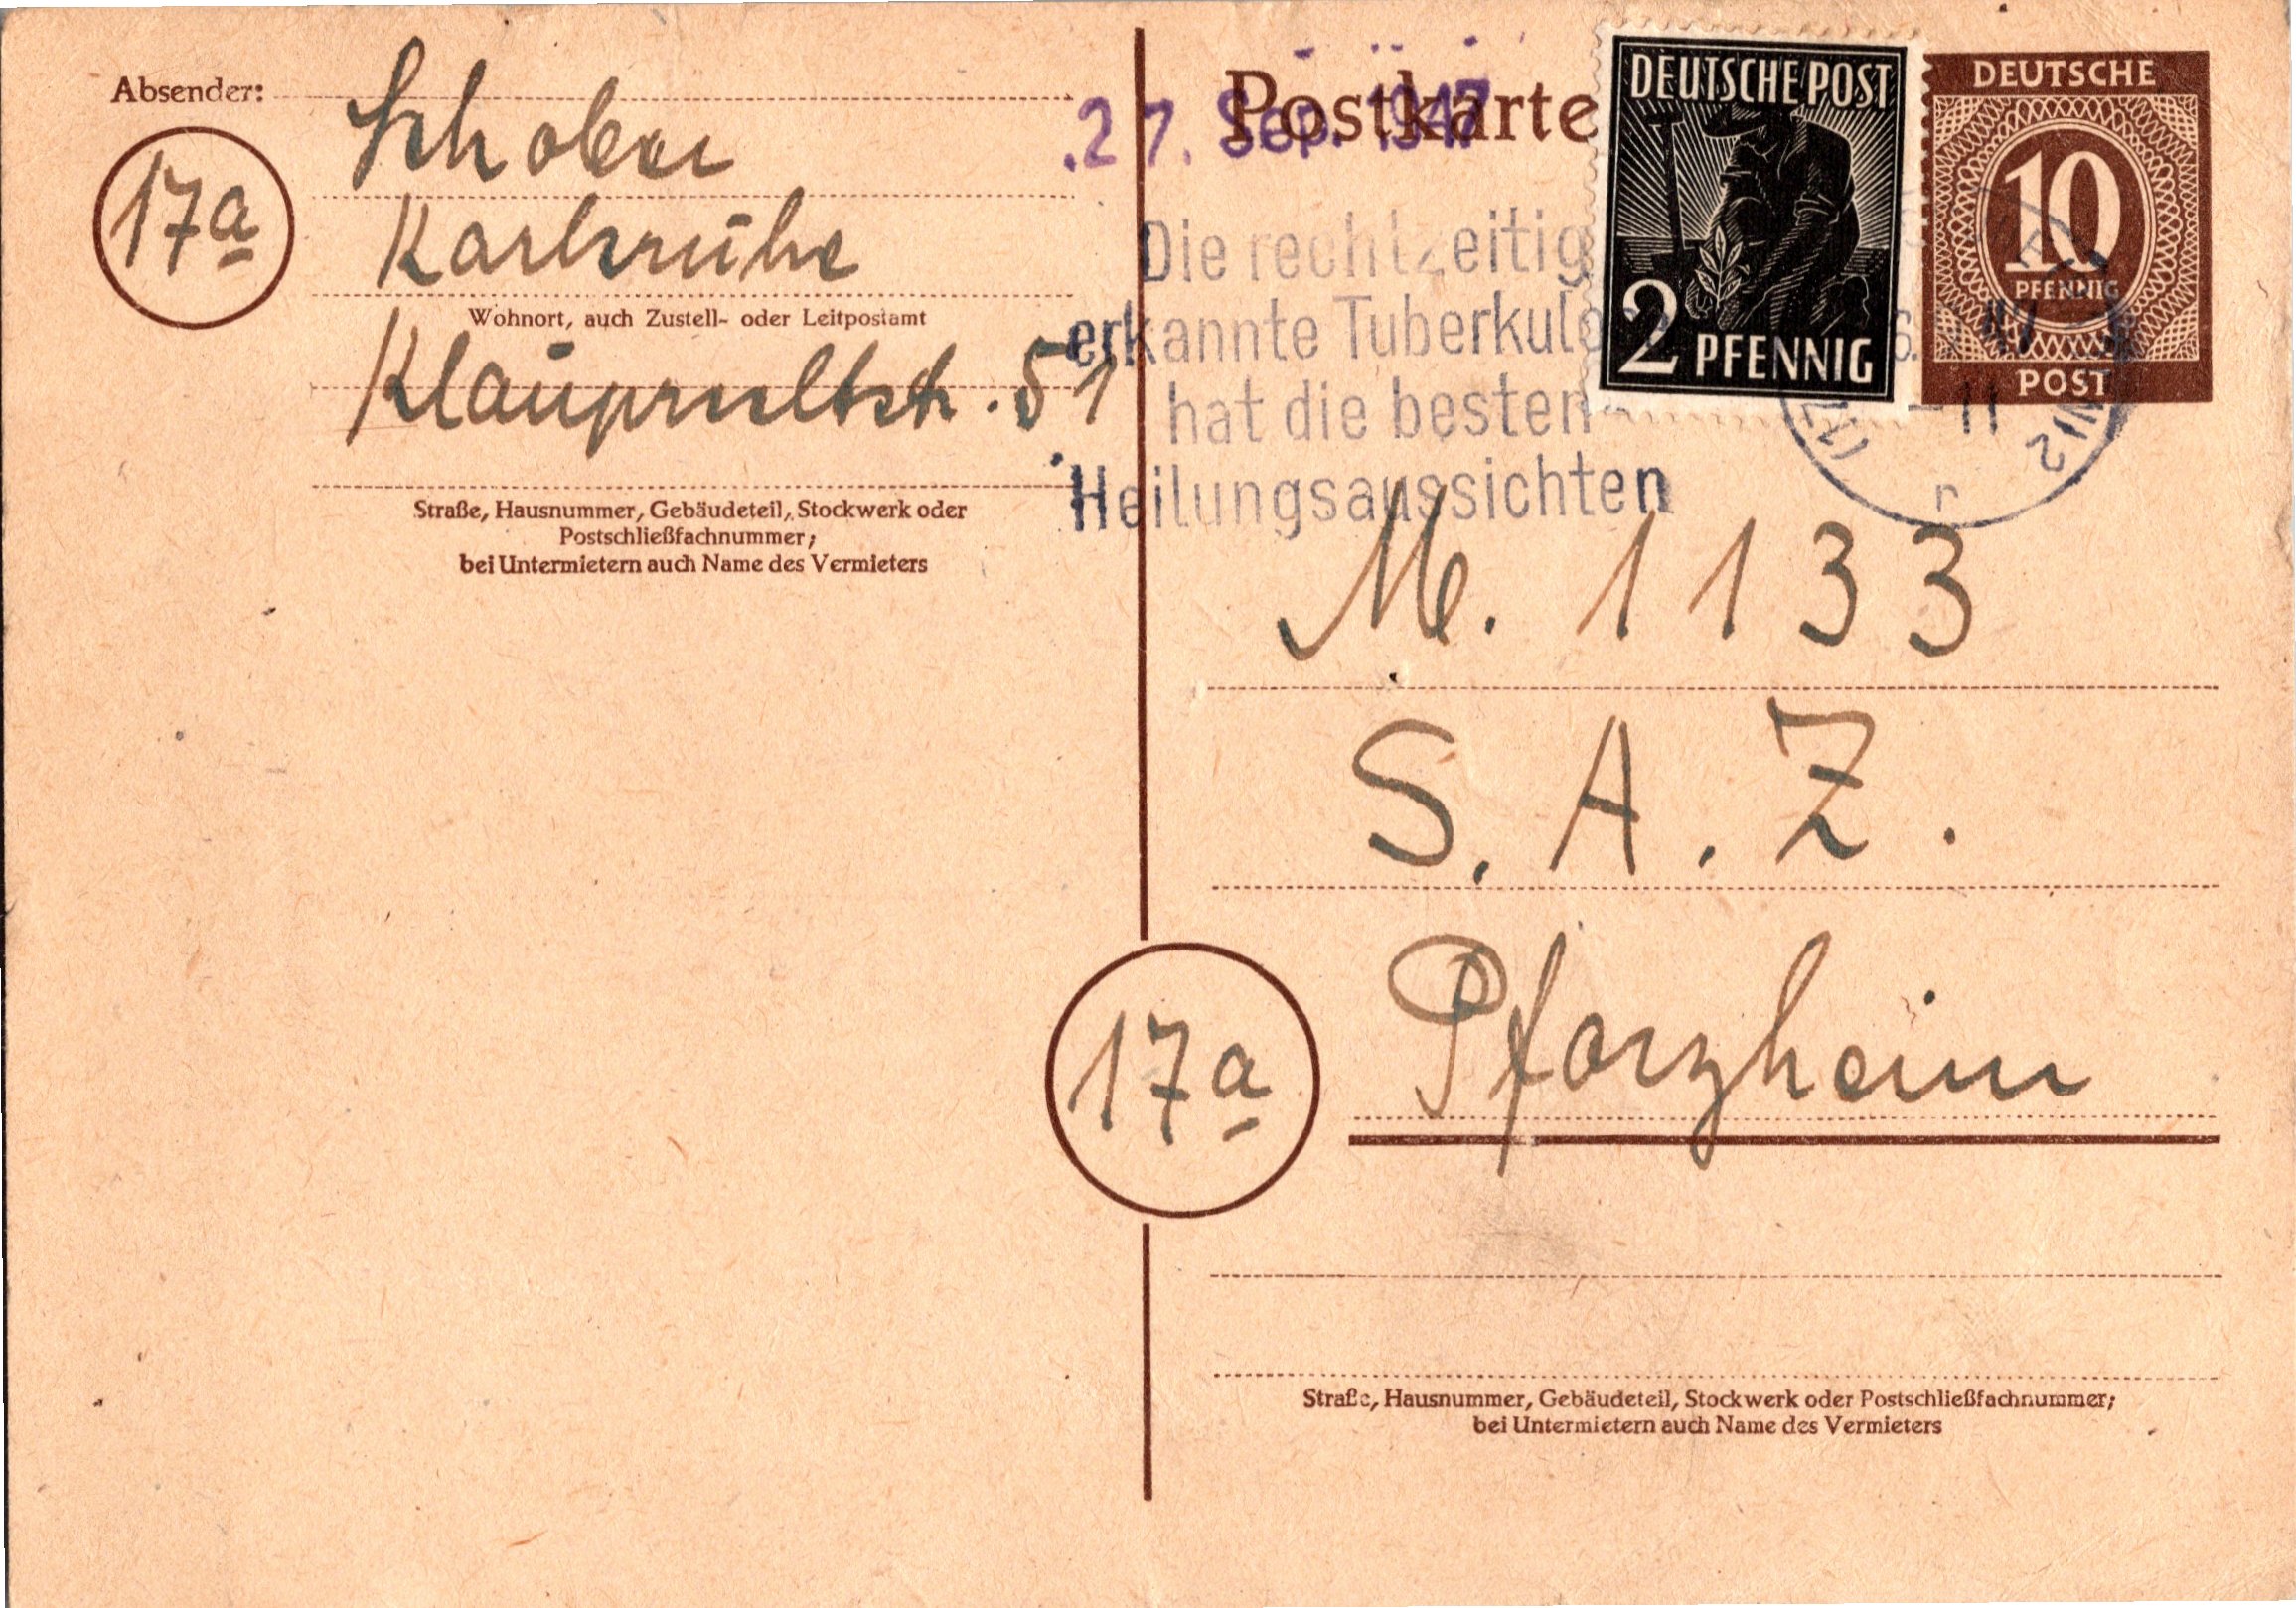 Absender:
Schober
17a
Karlsruhe
Wohnort, auch Zustell- oder Leitpostamt
Klauprechtstr. 51
Straße, Hausnummer, Gebäudeteil, Stockwerk oder
Postschließfachnummer;
bei Untermietern auch Name des Vermieters
27. Sep. 1947
Postkarte
DEUTSCHE POST
2 PFENNIG
DEUTSCHE
10
PFENNIG
POST
Die rechtzeitig
erkannte Tuberkulose
hat die besten
Heilungsaussichten
M. 1133
S. A. Z.
17a
Pforzheim
Straße, Hausnummer, Gebäudeteil, Stockwerk oder Postschließfachnummer;
bei Untermietern auch Name des Vermieters